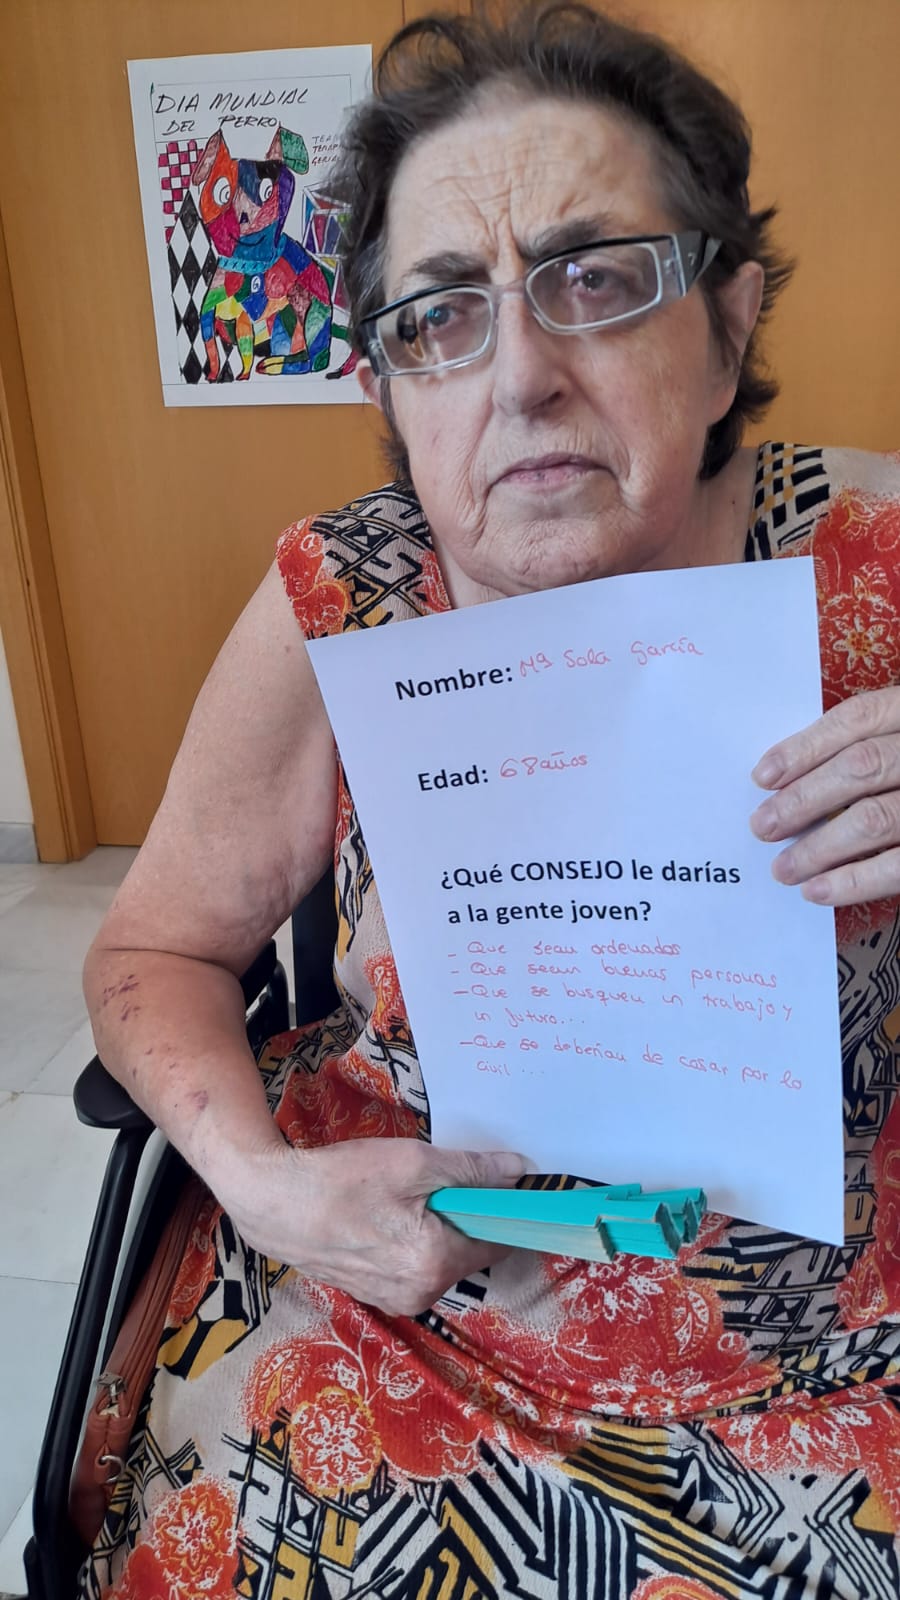 DIA MUNDIAL
DEL PERRO
Nombre: Mª Sola García
Edad: 68 años
¿Qué CONSEJO le darías
a la gente joven?
- Que sean ordenados
- Que sean buenas personas
- Que se busquen un trabajo y
un futuro...
- Que se deberían de casar por lo
civil ...